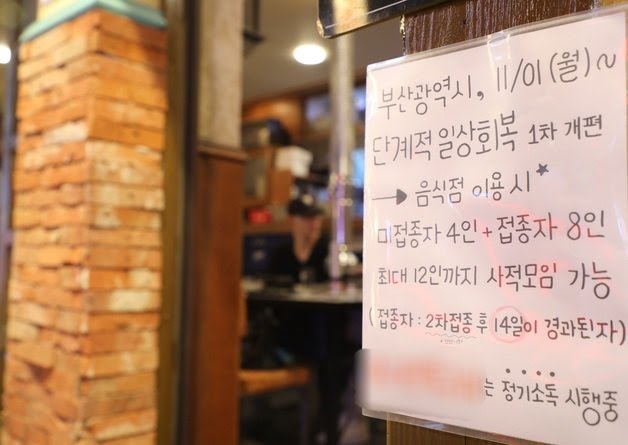 부산광역시, 11/01(월)~
단계적 일상회복 1차 개편
→ 음식점 이용 시★
미접종자 4인 + 접종자 8인
최대 12인까지 사적모임 가능
(접종자 : 2차접종 후 14일이 경과된 자)
는 정기소독 시행중